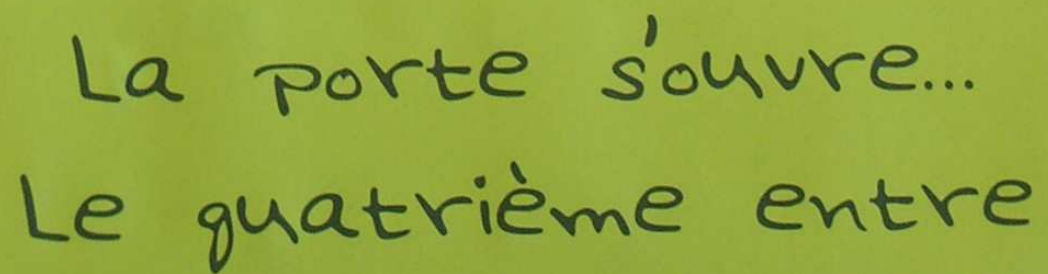 La porte s'ouvre...
Le quatrième entre